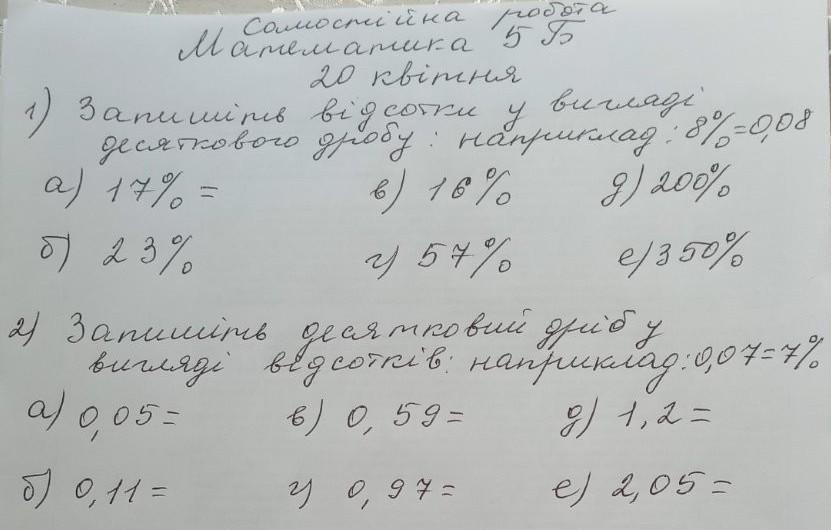 Самостійна робота
Математика 5 Б
20 квітня
1) Запишіть відсотки у вигляді
десяткового дробу: наприклад: 8%=0,08
а) 17% = в) 16% д) 200%
б) 23% г) 57% е) 350%
2) Запишіть десятковий дріб у
вигляді відсотків: наприклад: 0,07=7%
а) 0,05= в) 0,59= д) 1,2=
б) 0,11= г) 0,97= е) 2,05=